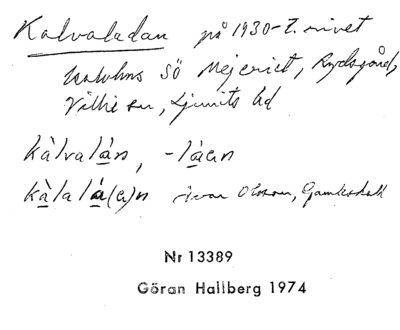 Kalvaladan på 1930-t. rivet
kalvhus SÖ Mejeriet, Rydsgård,
Villie sn, Ljunits hd
kàlvalán, -láen
kàlalá(e)n Ivar Olsson, Gamleskoll
Nr 13389
Göran Hallberg 1974